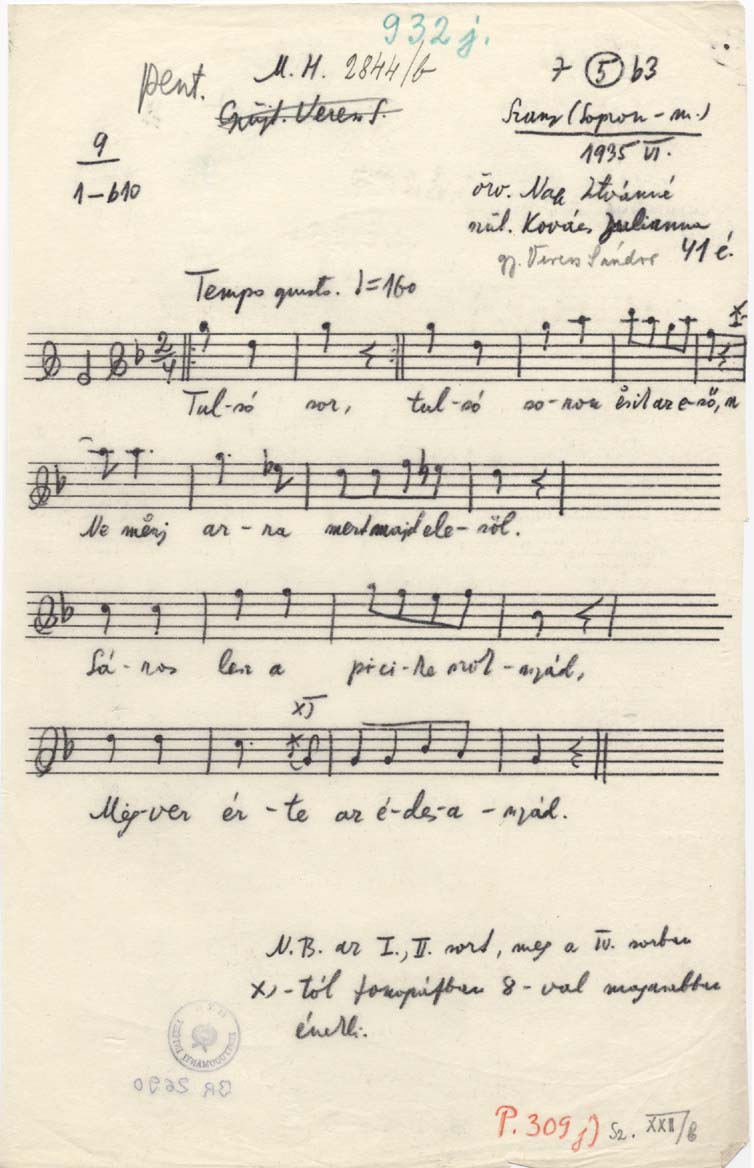 932 j.
pent. M.H. 2844/b 7 (5) b3
Gyűjt. Veress S. Szany (Sopron-m.)
9 1935 VI.
1-b10 örv. Nagy Istvánné
szül. Kovács Julianna
gy. Veress Sándor 41 é.
Tempo giusto. =160
2/4
Tul-só sor, tul-só so-ron åsik az e-ső, x
Ne månj ar-ra mert majd ele-söl.
Sá-ros lesz a pici-ke szok-nyád,
x)
Még-ver ér-te az é-des-a-nyád.
N.B. az I., II. sort, meg a IV. sorban
x)-tól fonográfban 8-val magasabban
énekli.
BR 2690
P. 309 j) Sz. XXII/b